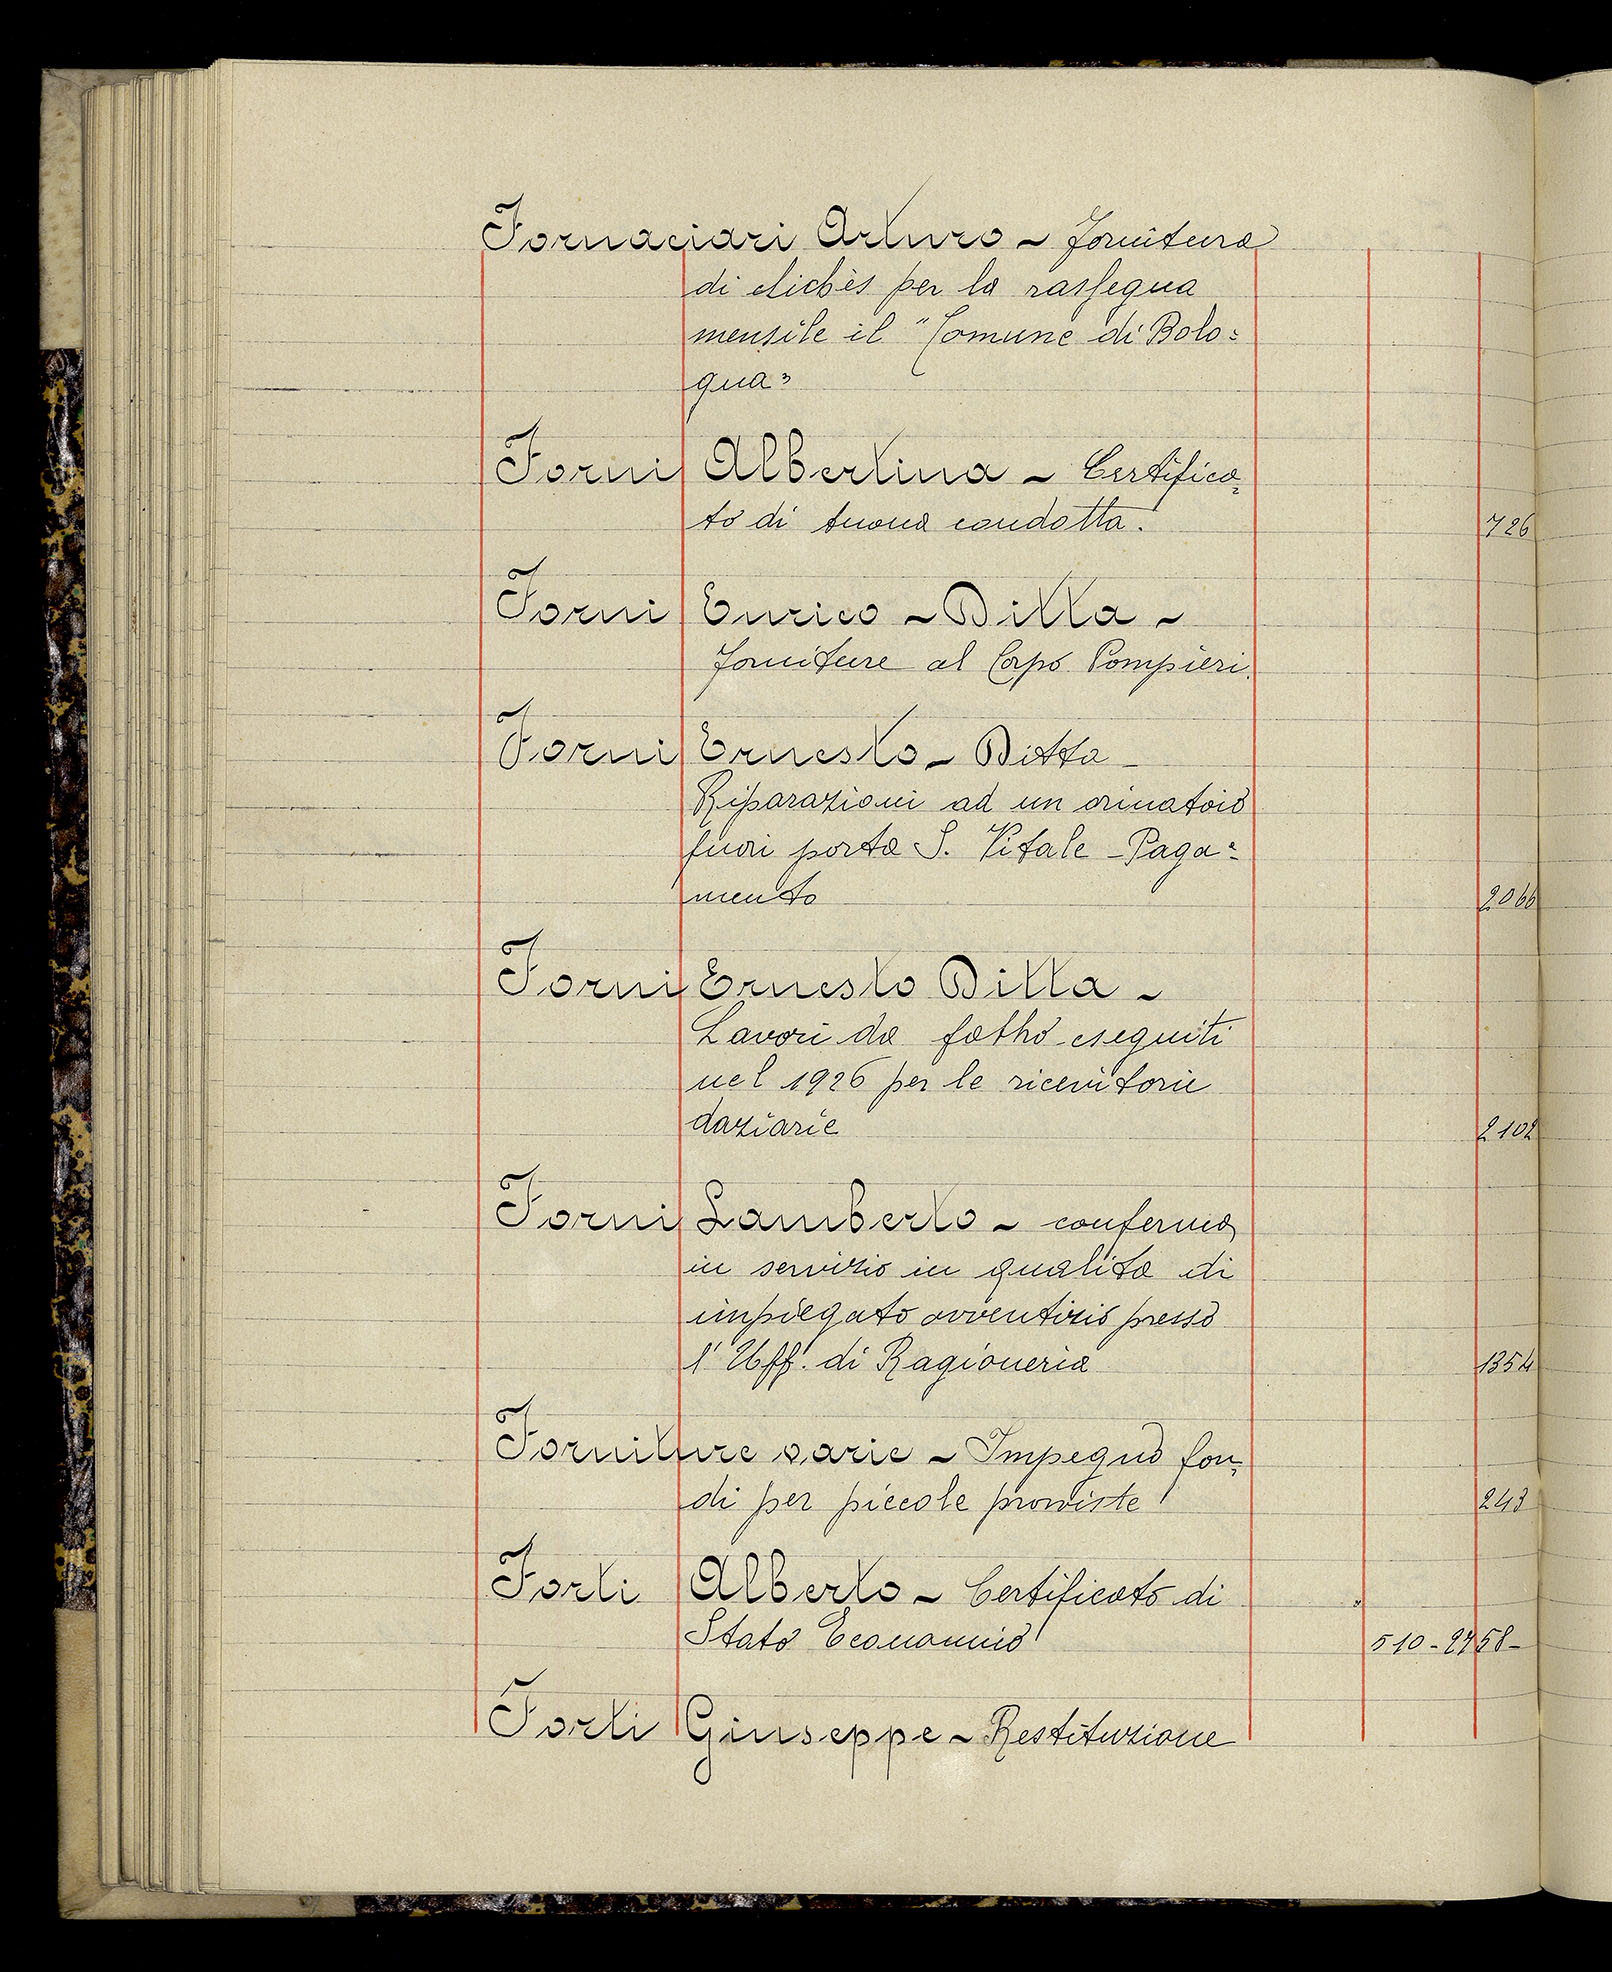 Fornaciari Arturo ~ fornitura
di clichès per la rassegna
mensile il "Comune di Bolo=
gna"
Forni Albertina ~ Certifica=
to di buona condotta. 726
Forni Enrico ~ Ditta ~
forniture al Corpo Pompieri.
Forni Ernesto ~ Ditta -
Riparazioni ad un orinatoio
fuori porta S. Vitale - Paga=
mento 2066
Forni Ernesto Ditta ~
Lavori da fabbro eseguiti
nel 1926 per le ricevitorie
daziarie 2102
Forni Lamberto ~ conferma
in servizio in qualità di
impiegato avventizio presso
l'Uff. di Ragioneria 1354
Forniture varie ~ Impegno fon=
di per piccole provviste 243
Forti Alberto ~ Certificato di
Stato Economico 510-2758-
Forti Giuseppe ~ Restituzione